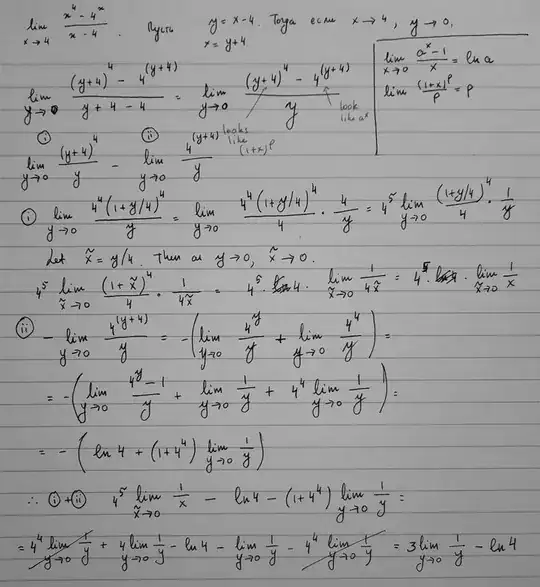 lim_{x→4} (x⁴ - 4ˣ)/(x - 4). Пусть y = x-4. Тогда если x → 4, y → 0.
x = y+4
lim_{y→0} ((y+4)⁴ - 4^{(y+4)})/(y+4-4) = lim_{y→0} ((y+4)⁴ - 4^{(y+4)})/y
looks like (1+x)^p
look like aˣ
lim_{x→0} (aˣ-1)/x = ln a
lim (1+x)^p/p = p
(i) lim_{y→0} (y+4)⁴/y - (ii) lim_{y→0} 4^{(y+4)}/y
(i) lim_{y→0} 4⁴(1+y/4)⁴/y = lim_{y→0} 4⁴(1+y/4)⁴/4 · 4/y = 4⁵ lim_{y→0} (1+y/4)⁴/4 · 1/y
Let x̃ = y/4. Then as y→0, x̃ → 0.
4⁵ lim_{x̃→0} (1+x̃)⁴/4 · 1/4x̃ = 4⁵ · 4 · lim_{x̃→0} 1/4x̃ = 4⁵ · lim_{x̃→0} 1/x
(ii) - lim_{y→0} 4^{(y+4)}/y = -(lim_{y→0} 4^y/y + lim_{y→0} 4⁴/y) =
= -(lim_{y→0} (4^y - 1)/y + lim_{y→0} 1/y + 4⁴ lim_{y→0} 1/y) =
= -(ln 4 + (1+4⁴) lim_{y→0} 1/y)
∴ (i)+(ii) 4⁵ lim_{x̃→0} 1/x - ln 4 - (1+4⁴) lim_{y→0} 1/y =
= 4⁴ lim_{y→0} 1/y + 4 lim_{y→0} 1/y - ln 4 - lim_{y→0} 1/y - 4⁴ lim_{y→0} 1/y = 3 lim_{y→0} 1/y - ln 4